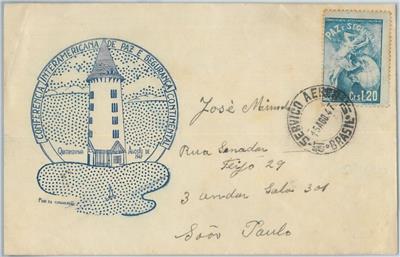 CONFERENCIA INTERAMERICANA DE PAZ E SEGURANÇA CONTINENTAL
Quitandinha Agosto de 1947
PAZ E
Cr$ 1,20
SERVIÇO AEREO
15 AGO 47
BRASIL
José
Rua Senador
Feijó 29
3 andar Sala 301
São Paulo